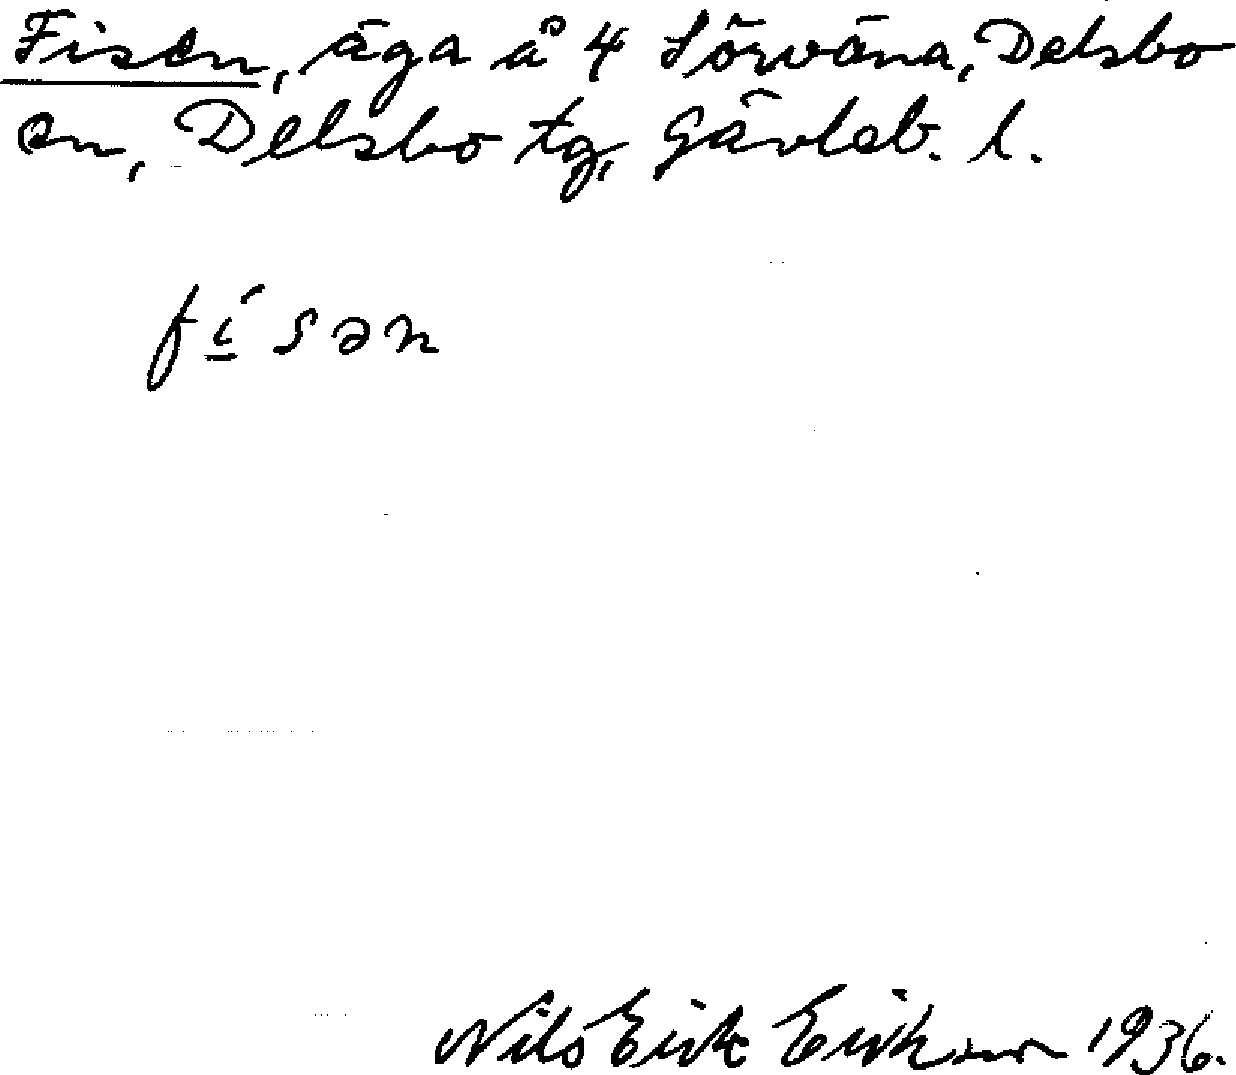 Fisen, äga å 4 Sörväna, Delsbo
sn, Delsbo tg, Gävleb. l.
fí̲sən
Nils Eirik Eiriksson 1936.